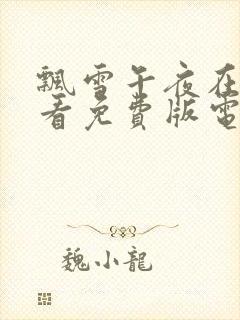 飄雪午夜在
看免費版電
魏小龍